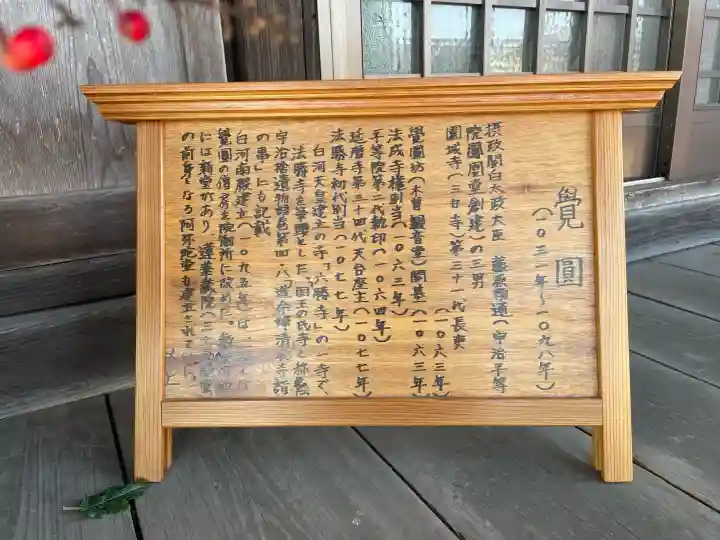 覺圓
(一〇三一年〜一〇九八年)
摂政関白太政大臣 藤原頼通(宇治平等
院鳳凰堂創建)の三男
園城寺(三井寺)第三十一代長吏
(一〇六三年)
覺圓坊(木曽観音堂)開基(一〇六三年)
法成寺権別当(一〇六三年)
平等院第二代執印(一〇六四年)
延暦寺第三十四代天台座主(一〇七七年)
法勝寺初代別当(一〇七七年)
白河天皇建立の寺「六勝寺」の一寺で、
法勝寺を筆頭とした、国王の氏寺と称
宇治拾遺物語巻第四・八「進命婦清水寺詣
の事」にも記載
白河南殿建立(一〇九五年)は、
覺圓の僧房を院御所に改めた。
には新堂があり 蓮華蔵院(三十
の前身となる阿弥陀堂も建立されていた。
以上